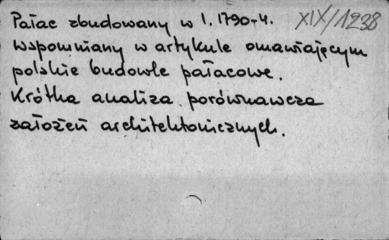 Pałac zbudowany w l. 1790-4. XIX/1238
Wspomniany w artykule omawiającym
polskie budowle pałacowe.
Krótka analiza porównawcza
założeń architektonicznych.